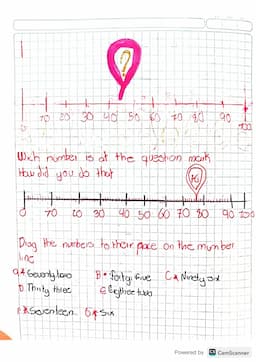 ?
0 10 20 30 40 50 60 70 80 90 100
Wich number is at the question mark
How did you do that
76
0 10 20 30 40 50 60 70 80 90 100
Drag the numbers to their place on the number
line
Seventy two B* forty five C* Ninety six
D Thirty three
Seventeen G* Six
Powered by CS CamScanner